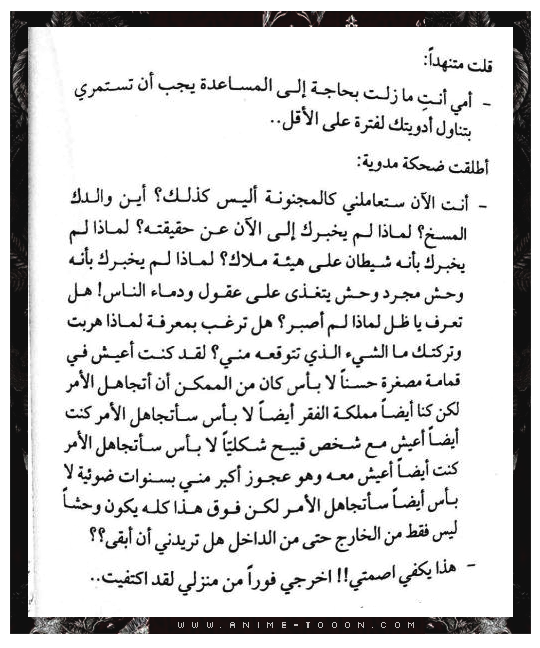 قلت متنهداً:
- أمي أنتِ ما زلت بحاجة إلى المساعدة يجب أن تستمري
بتناول أدويتك لفترة على الأقل..
أطلقت ضحكة مدوية:
- أنت الآن ستعاملني كالمجنونة أليس كذلك؟ أين والدك
المسخ؟ لماذا لم يخبرك إلى الآن عن حقيقته؟ لماذا لم
يخبرك بأنه شيطان على هيئة ملاك؟ لماذا لم يخبرك بأنه
وحش مجرد وحش يتغذى على عقول ودماء الناس! هل
تعرف يا ظل لماذا لم أصبر؟ هل ترغب بمعرفة لماذا هربت
وتركتك ما الشيء الذي تتوقعه مني؟ لقد كنت أعيش في
قمامة مصغرة حسناً لا بأس كان من الممكن أن أتجاهل الأمر
لكن كنا أيضاً مملكة الفقر أيضاً لا بأس سأتجاهل الأمر كنت
أيضاً أعيش مع شخص قبيح شكليّاً لا بأس سأتجاهل الأمر
كنت أيضاً أعيش معه وهو عجوز أكبر مني بسنوات ضوئية لا
بأس أيضاً سأتجاهل الأمر لكن فوق هذا كله يكون وحشاً
ليس فقط من الخارج حتى من الداخل هل تريدني أن أبقى؟؟
- هذا يكفي اصمتي!! اخرجي فوراً من منزلي لقد اكتفيت..
WWW.ANIME-TOOON.COM